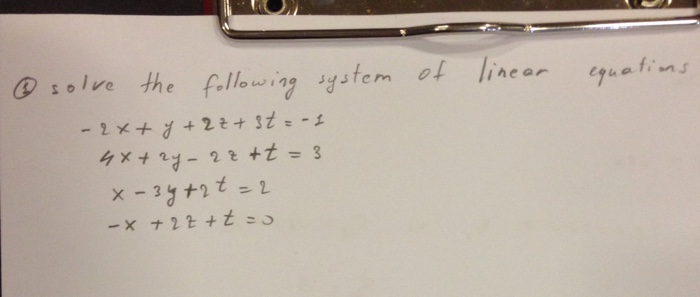 ① solve the following system of linear equations
-2x + y + 2z + 3t = -1
4x + 2y - 2z + t = 3
x - 3y + 2t = 2
-x + 2z + t = 0